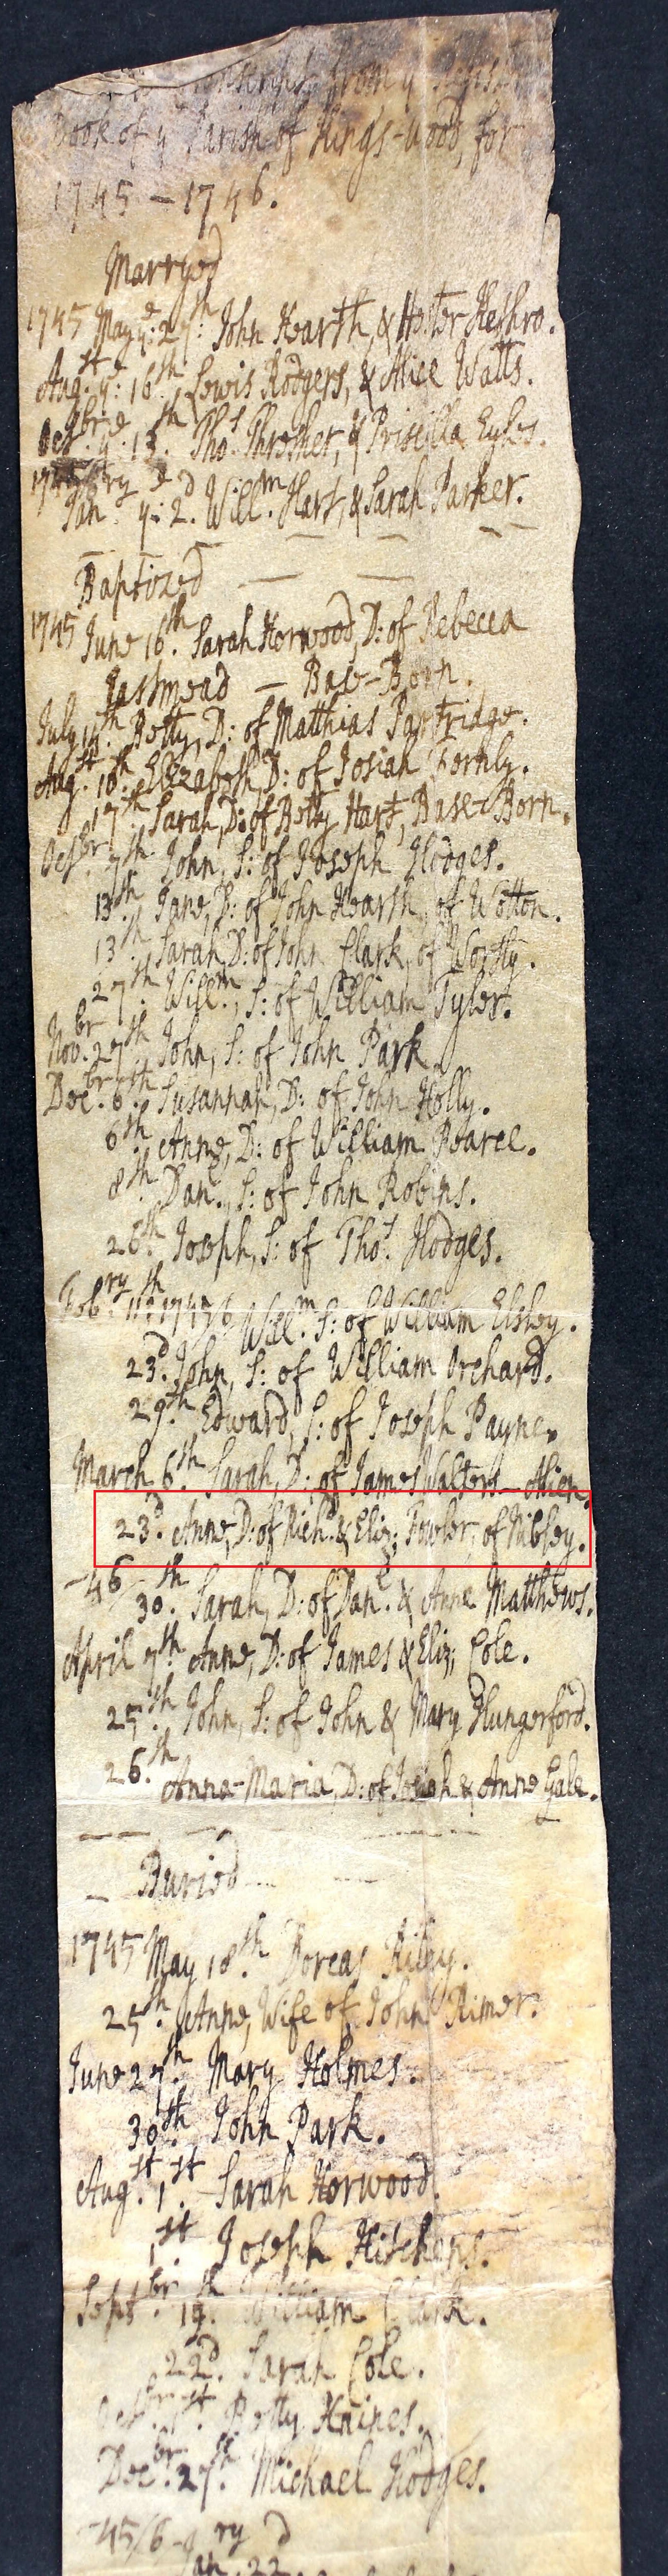 from y
Book of y Parish of Kings-wood, for
1745 - 1746.
Marryed
1745 May ye: 27th: John Hearth, & Hester Heskro.
Augst. ye: 16th Lewis Rodgers, & Alice Watts.
Octbr. ye. 13th. Thos. Thresher, & Priscilla Eyles.
Janry ye: 2d. Willm. Hart, & Sarah Parker.
Baptized
1745 June 16th. Sarah Horwood, D: of Rebecca
Eastmead - Base-Born.
July 14th. Betty, D: of Matthias Partridge.
Augst. 10th. Elizabeth, D: of Josiah Fernly.
17th Sarah, D: of Betty Hart, Base-Born.
Octbr. 7th John, S: of Joseph Hodges.
13th. Jane, D: of John Hearth, of Wotton.
13th. Sarah, D: of John Clark, of Wortly.
27th. Willm., S: of William Tyler.
Novbr. 27th John, S: of John Park
Decbr. 6th. Susannah, D: of John Holly.
6th Anne, D: of William Pearce.
8th. Danl., S: of John Robins.
26th. Joseph, S: of Thos. Hodges.
Febry 11th: 1745/6 Willm. S: of William Elsley.
23d. John, S: of William Orchard.
29th. Edward, S: of Joseph Payne.
March 6th. Sarah, D: of James Walters - Alien.
23d. Anne, D: of Richd. & Eliz: Fowler, of Nibley.
-46- 30th. Sarah, D: of Danl. & Anne Matthews.
April 7th Anne, D: of James & Eliz; Cole.
25th John, S: of John & Mary Hungerford.
26.th Anna-Maria, D: of Josiah & Anne Gale.
Buried
1745 May 18th. Doreas Riley.
25th. Anne, Wife of John Rimer.
June 27th. Mary Holmes.
30th. John Park.
Augst. 1st. Sarah Horwood.
1st. Joseph Hitchens.
Septbr. 19th. William Clark.
22d. Sarah Cole.
Octbr. 1st. Betty Haines.
Decbr. 27th. Michael Hodges.
-45/6- Janry 22d.